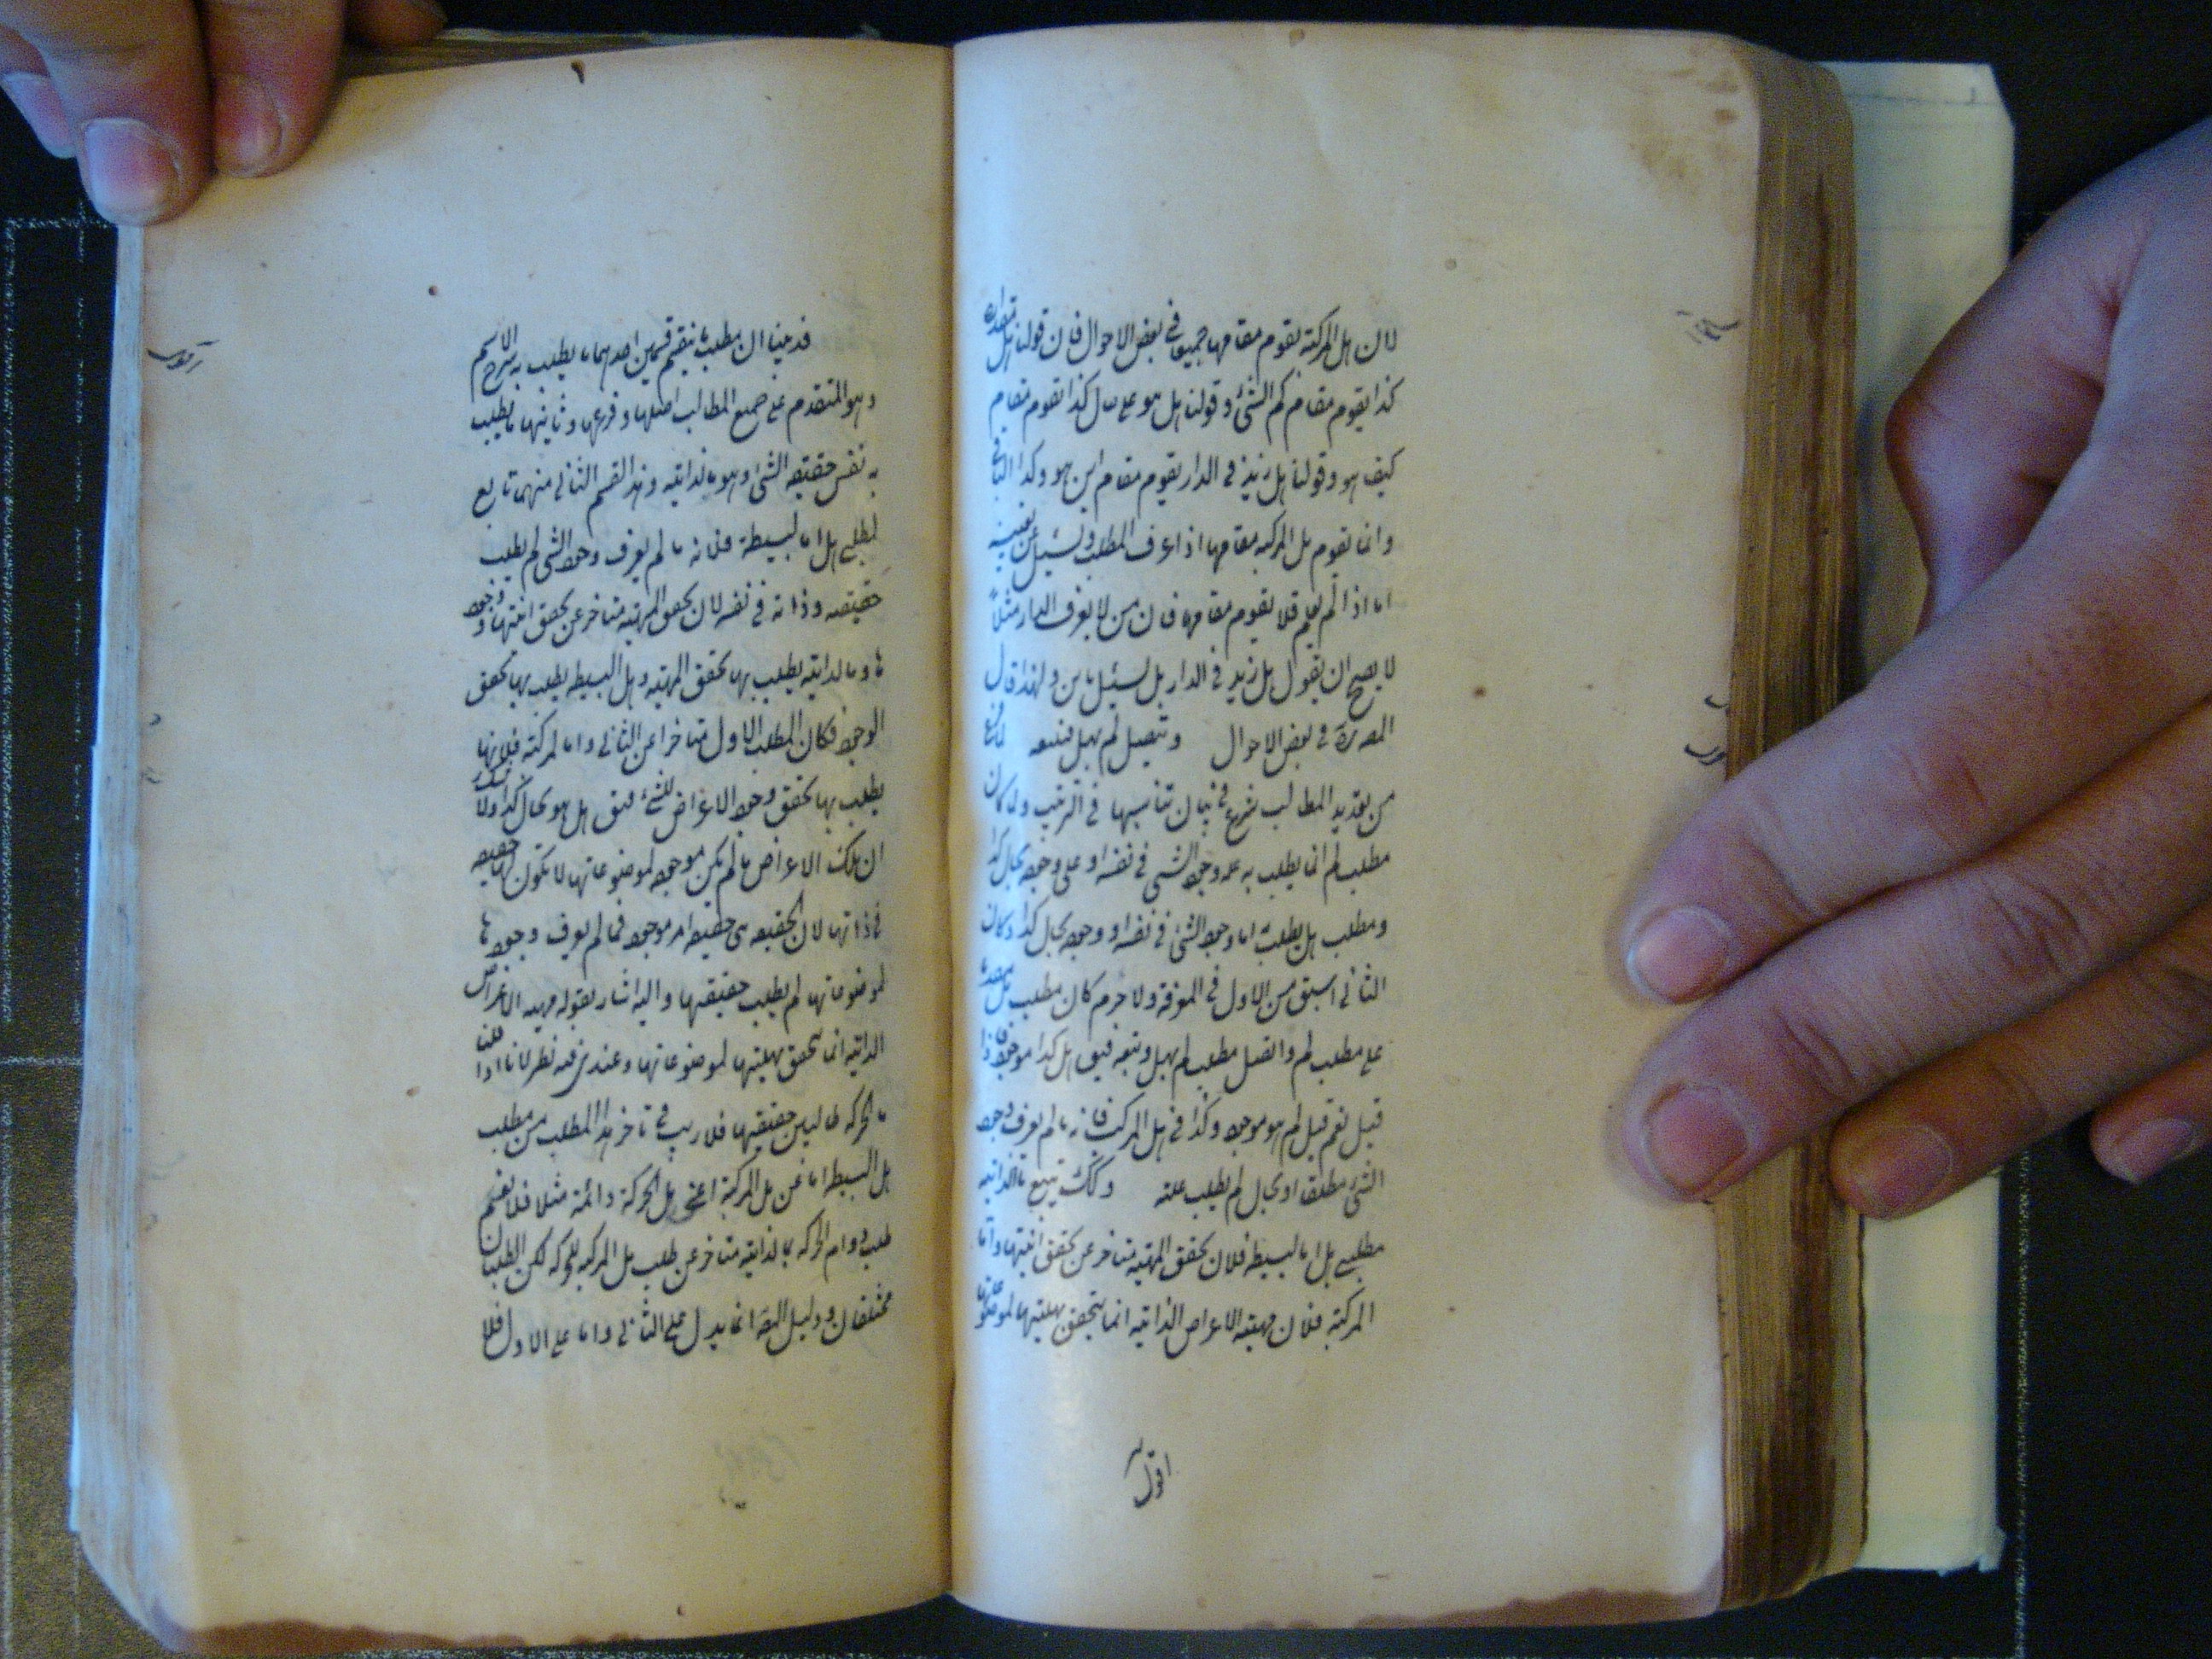 لان هل المركبة يقوم مقامها جميعا في بعض الاحوال فان قولنا هل مقداره
كذا يقوم مقام كم الشئ وقولنا هل هو على حال كذا يقوم مقام
كيف هو وقولنا هل زيد في الدار يقوم مقام اين هو وكذا الباقى
وانما يقوم هل المركبه مقامها اذا عرف المطلب وسئيل عن تعيينه
اما اذا لم يعلم فلا يقوم مقامها فان من لا يعرف الدار مثلاً
لا يصح ان يقول هل زيد في الدار بل يسئيل باين ولهذا قال
في بعض الاحوال ويتصل لم بهل فيتبعه لما فرغ
من تعديد المطالب شرع في بيان تناسبها في الترتيب ولما كان
مطلب لم انما يطلب به عله وجود الشئ في نفسه او على وجوده بحال كذا
ومطلب هل يطلب اما وجود الشئ في نفسه او وجوده بحال كذا وكان
الثاني اسبق من الاول في المعرفة ولا جرم كان مطلب هل متقدما
على مطلب لم واتصل مطلب لم بهل وتبعه فيق هل كذا موجود فاذا
قيل نعم قيل لم هو موجود وكذا في هل المركب فانه ما لم يعرف وجود
الشئ مطلقا او بحال لم يطلب علته وكك يتبع ما الذاتيه
مطلبى هل اما البسيطه فلان تحقق المهيه متاخر عن تحقق انيتها واما
المركبة فلان مهيه الاعراض الذاتيه انما يتحقق بهليتها لموضوعاتها
اقول
قد بينا ان مطلب ما ينقسم قسمين احدهما ما يطلب به شرح الاسم
وهو المتقدم على جميع المطالب اصلها وفرعها وثانيها ما يطلب
به نفس حقيقه الشئ وهو ما الذاتيه وهذا القسم الثاني منهما تابع
لمطلبى هل اما البسيطة فلانه ما لم يعرف وجود الشئ لم يطلب
حقيقته وذاته في نفسه لان تحقق المهيه متاخر عن تحقق انيتها ووجود
ها وما الذاتيه يطلب بها تحقق المهيه وهل البسيطه يطلب بها تحقق
الوجود فكان المطلب الاول متاخرا عن الثاني واما المركبة فلانها
يطلب بها تحقق وجود الاعراض للشئ فيق هل هو بحال كذا ولا
ان تلك الاعراض ما لم يكن موجوده لموضوعاتها لا تكون لها حقيقه
في ذاتها لان الحقيقه هي حقيقه امر موجود فما لم يعرف وجودها
لموضوعاتها لم يطلب حقيقتها واليه اشار بقوله مهيه الاعراض
الذاتيه انما يتحقق بهليتها لموضوعاتها وعندي فيه نظر لانا اذا قلنا
ما الحركه طالبين حقيقتها فلا ريب في تاخر هذا المطلب من مطلب
هل البسيطه اما عن هل المركبة اعني هل الحركة دائمة مثلا فلا نعم
طلب دوام الحركه بما لذاتيه متاخر عن طلب هل المركبه للحركه لكن الطلبان
مختلفان ودليل المص انما يدل على الثاني واما على الاول فلا